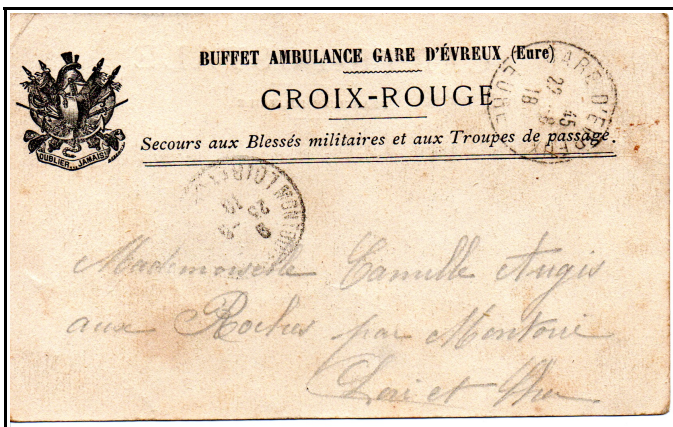 BUFFET AMBULANCE GARE D'ÉVREUX (Eure)
CROIX-ROUGE
Secours aux Blessés militaires et aux Troupes de passage.
OUBLIER... JAMAIS!
GARE D'EVREUX
EURE
45
22-8
18
MONTOIRE
LOIR
Mademoiselle Camille Augis
aux Roches par Montoire
Loir et Cher